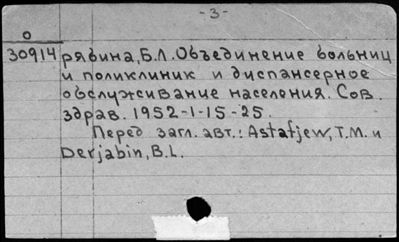 - 3 -
0
30914 рявина, Б.Л. Объединение больниц
и поликлиник и диспансерное
обслуживание населения. Сов.
здрав. 1952-1-15-25.
Перед загл. авт.: Astafjew, T.M. и
Derjabin, B.L.